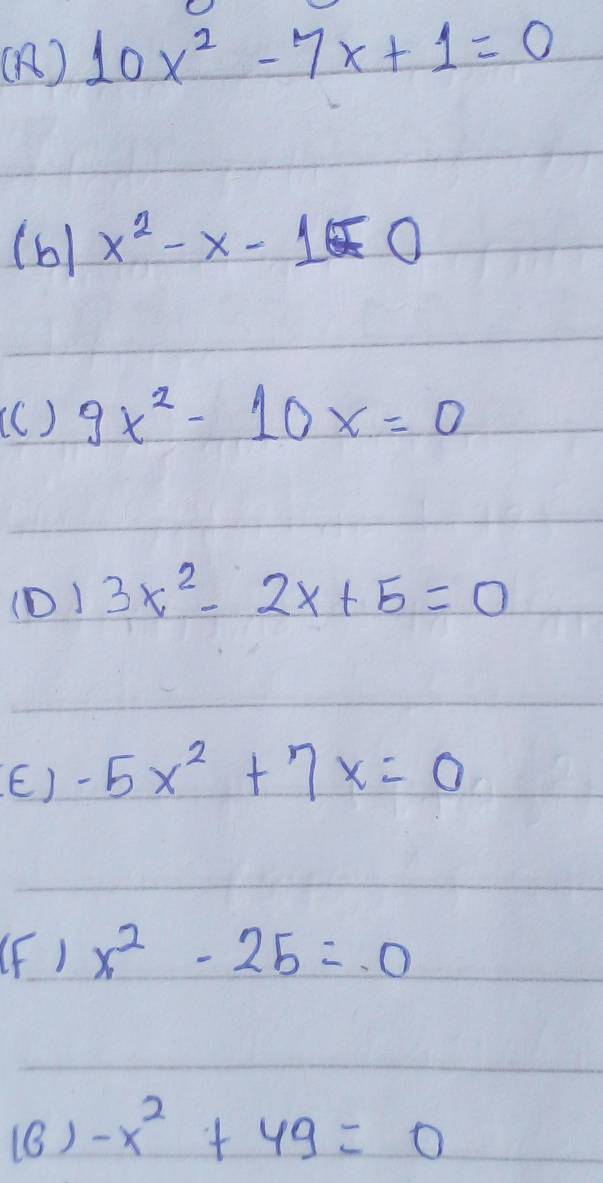 (A) 10x² - 7x + 1 = 0
(b) x² - x - 1 = 0
(C) 9x² - 10x = 0
(D) 3x² - 2x + 5 = 0
(E) -5x² + 7x = 0
(F) x² - 25 = 0
(G) -x² + 49 = 0